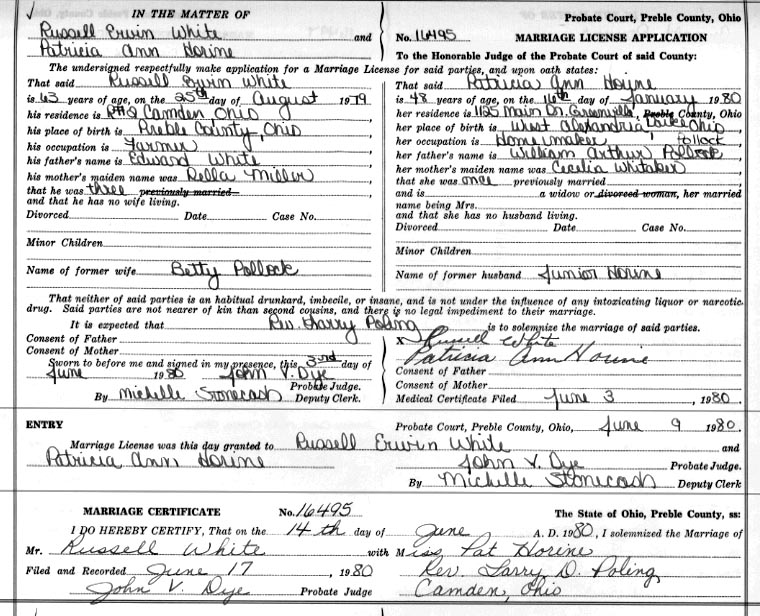 IN THE MATTER OF
Russell Erwin White and
Patricia Ann Horine
Probate Court, Preble County, Ohio
No. 16495 MARRIAGE LICENSE APPLICATION
To the Honorable Judge of the Probate Court of said County:
The undersigned respectfully make application for a Marriage License for said parties, and upon oath states:
That said Russell Erwin White
is 63 years of age, on the 25th day of August 1979
his residence is R#2 Camden Ohio
his place of birth is Preble County, Ohio
his occupation is Farmer
his father's name is Edward White
his mother's maiden name was Della Miller
that he was three previously married
and that he has no wife living.
Divorced Date Case No.
Minor Children
Name of former wife Betty Pollock
That said Patricia Ann Horine
is 48 years of age, on the 16th day of January 1980
her residence is 1125 Main Dr. Greenville, Preble County, Ohio
Darke
her place of birth is West Alexandria Ohio
her occupation is Homemaker
Pollock
her father's name is William Arthur Pollock
her mother's maiden name was Cecelia Whitaker
that she was once previously married
and is a widow or divorced woman, her married
name being Mrs.
and that she has no husband living.
Divorced Date Case No.
Minor Children
Name of former husband Junior Horine
That neither of said parties is an habitual drunkard, imbecile, or insane, and is not under the influence of any intoxicating liquor or narcotic
drug. Said parties are not nearer of kin than second cousins, and there is no legal impediment to their marriage.
It is expected that Rev. Harry Poling is to solemnize the marriage of said parties.
Consent of Father
Consent of Mother
Sworn to before me and signed in my presence, this 3rd day of
June 1980 John V. Dye
Probate Judge.
By Michelle Stonecash Deputy Clerk.
X Russell White
Patricia Ann Horine
Consent of Father
Consent of Mother
Medical Certificate Filed June 3, 1980.
ENTRY Probate Court, Preble County, Ohio, June 9 1980.
Marriage License was this day granted to Russell Erwin White and
Patricia Ann Horine John V. Dye Probate Judge.
By Michelle Stonecash Deputy Clerk
MARRIAGE CERTIFICATE No. 16495 The State of Ohio, Preble County, ss:
I DO HEREBY CERTIFY, That on the 14th day of June A. D. 1980, I solemnized the Marriage of
Mr. Russell White with Miss Pat Horine
Filed and Recorded June 17, 1980 Rev. Larry D. Poling
John V. Dye Probate Judge Camden, Ohio